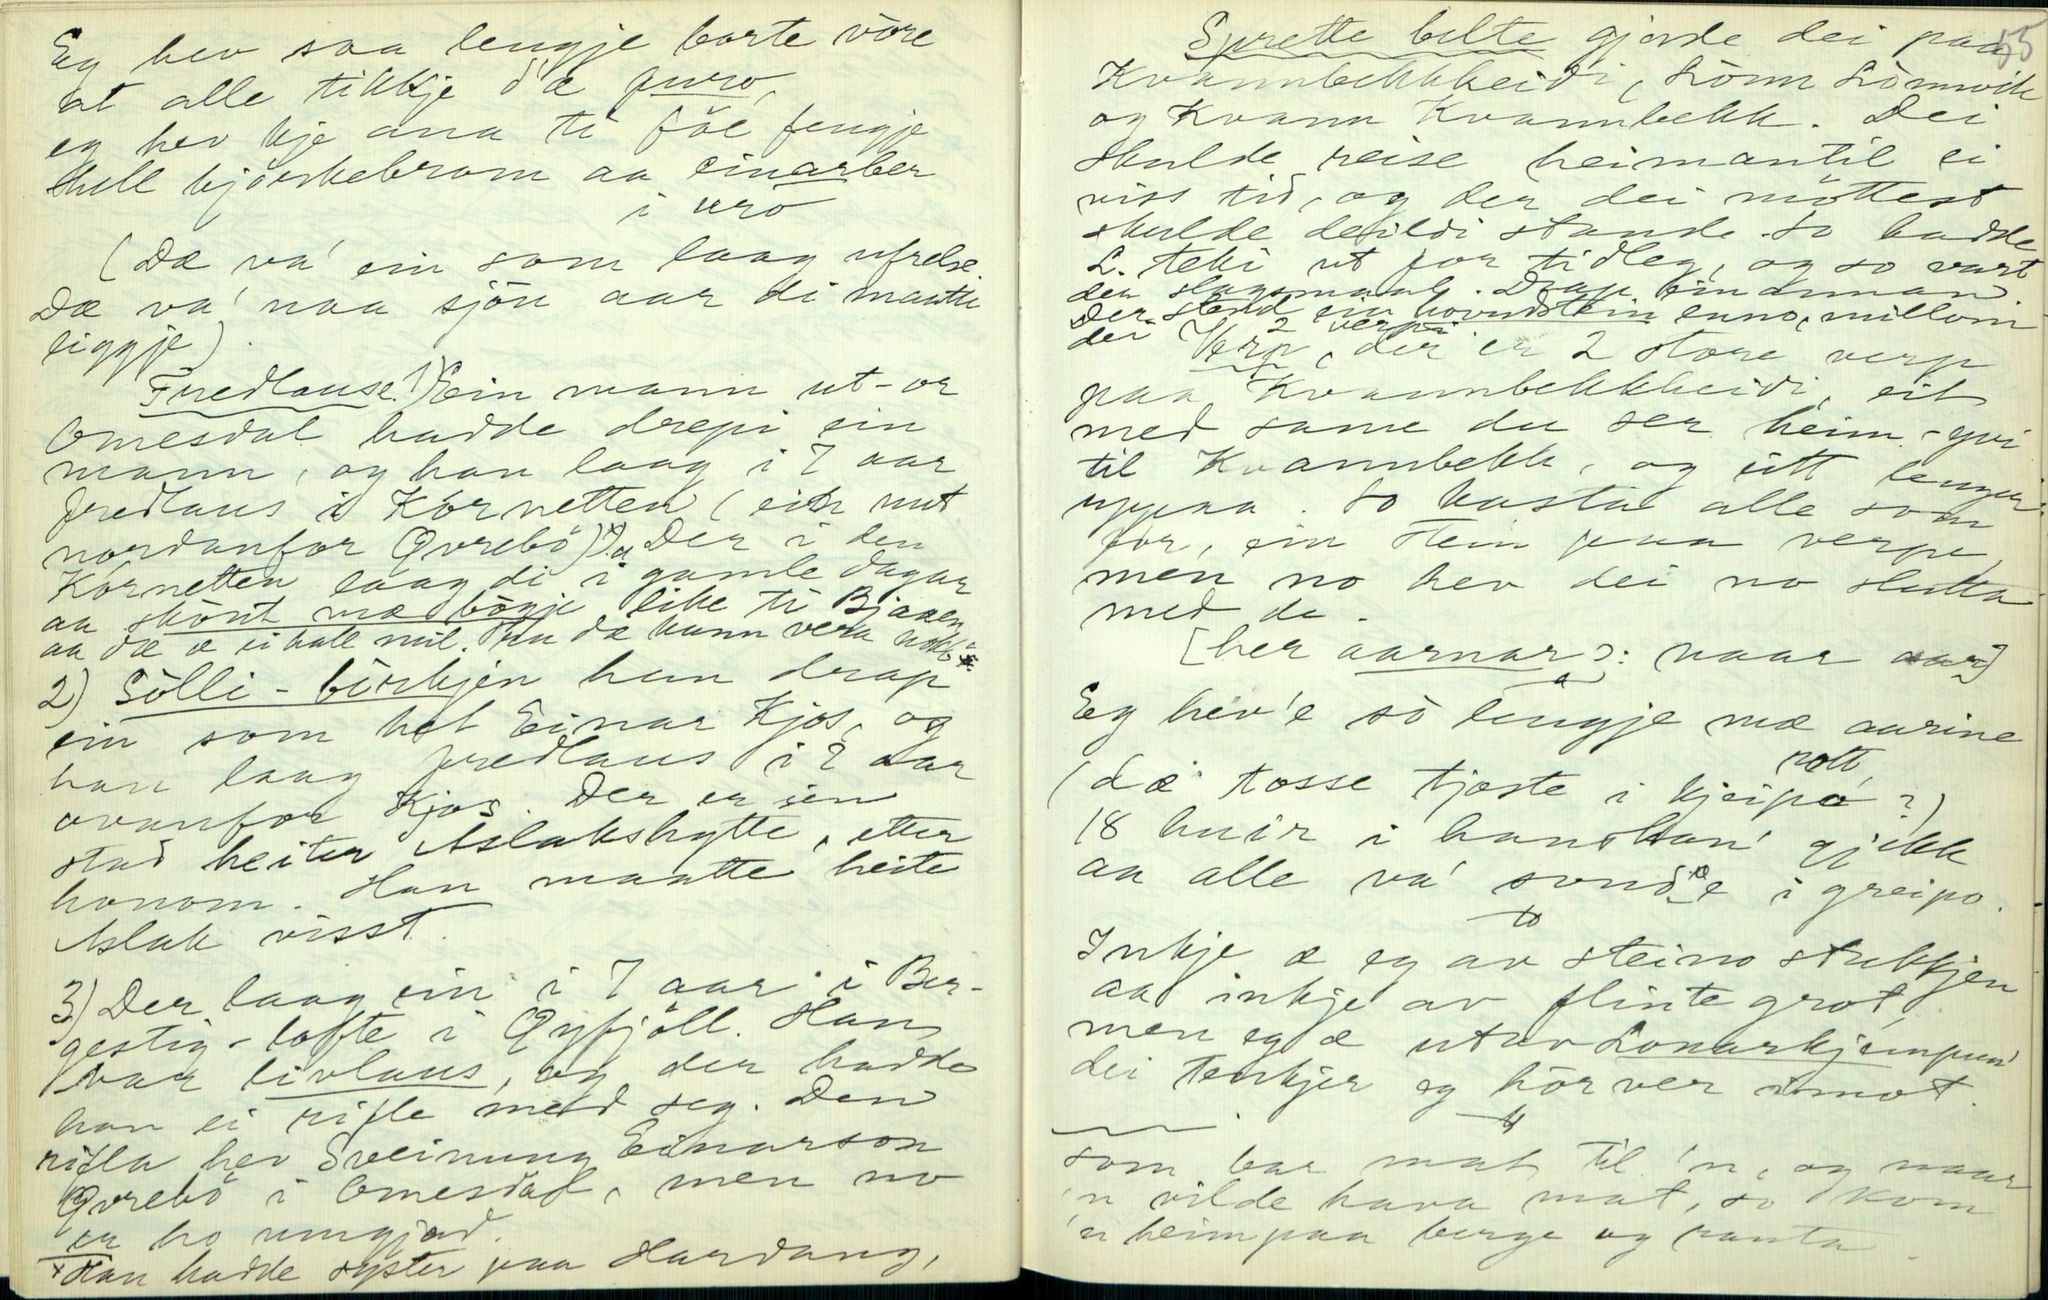 Eg hev saa lengje borte vöre
at alle tikkje d'æ puro,
eg hev kje ana ti föe fengje
hell björkebrom aa einarber
i uro
(Dæ va' ein som laag ufrelse.
Dæ va' naa sjön aar di maatte
liggje).
Fredlause. 1) Ein mann ut-or
Omesdal hadde drepi ein
mann, og han laag i 7 aar
fredlaus i Kornetten (ein nut
nordanfor Qvrebö). x) Der i den
Kornetten laag di i gamle dagar
aa skönt mæ bögje like ti Bjaaen
aa dæ æ ei halv mil. Aa dæ kann vera nokk
2) Sölli-birkjen han drap
ein som het Einar Kjos, og
han laag fredlaus i 7 aar
ovanfor Kjos. Der er ein
stad heiter Aslakshytte, etter
honom. Han maatte heite
Aslak visst.
3) Der laag ein i 7 aar i Ber-
gestig-lofte i Qyfjöll. Han
var livlaus, og der hadde
han ei rifle med seg. Den
rifla hev Sveinung Einarson
Qvrebö i Omesdal, men no
er ho umgjord.
x Han hadde syster paa Hardang,
55
Sprette belte gjorde dei paa
Kvannbekkheidi, Lönn Lönnvik
og Kvann Kvannbekk. Dei
skulde reise heimantil ei
viss tid, og der dei möttest
skulde deildi stande. So hadde
L. teki ut for tidleg, og so vart
der slagsmaal. Drap einannan.
Der stend ein hovudstein enno, millom
dei 2 verpi
Verp, der er 2 store verp
paa Kvannbekkheidi, eit
med same du ser heim-yvi
til Kvannbekk, og eitt lenger
uppaa. So kasta alle som
for, ein stein paa verpe,
men no hev dei no slutta
med de.
[her aarnar ɔ: naar aar]
Eg hev'e so lengje mæ aarine
(dæ tosse tjoste i kjeipo ?)
nott,
18 huir i hand han' gjekk
aa alle va' sond'e i greipo.
Inkje æ eg av steino stukkjen
aa inkje av flinte grot,
men eg æ utav Lonarkjempun'
dei tenkjer eg hörver imot.
som bar mat til 'n, og naar
'n vilde hava mat, so kom
'n heim paa berge og ranta.